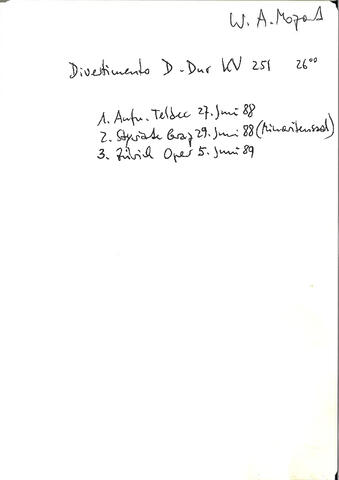 W. A. Mozart
Divestimento D-Dur KV 251 26⁰⁰
1. Aufn. Teldec 27. Juni 88
2. Styriarte Graz 29. Juni 88 (Minoritensaal)
3. Zürich Oper 5. Juni 89